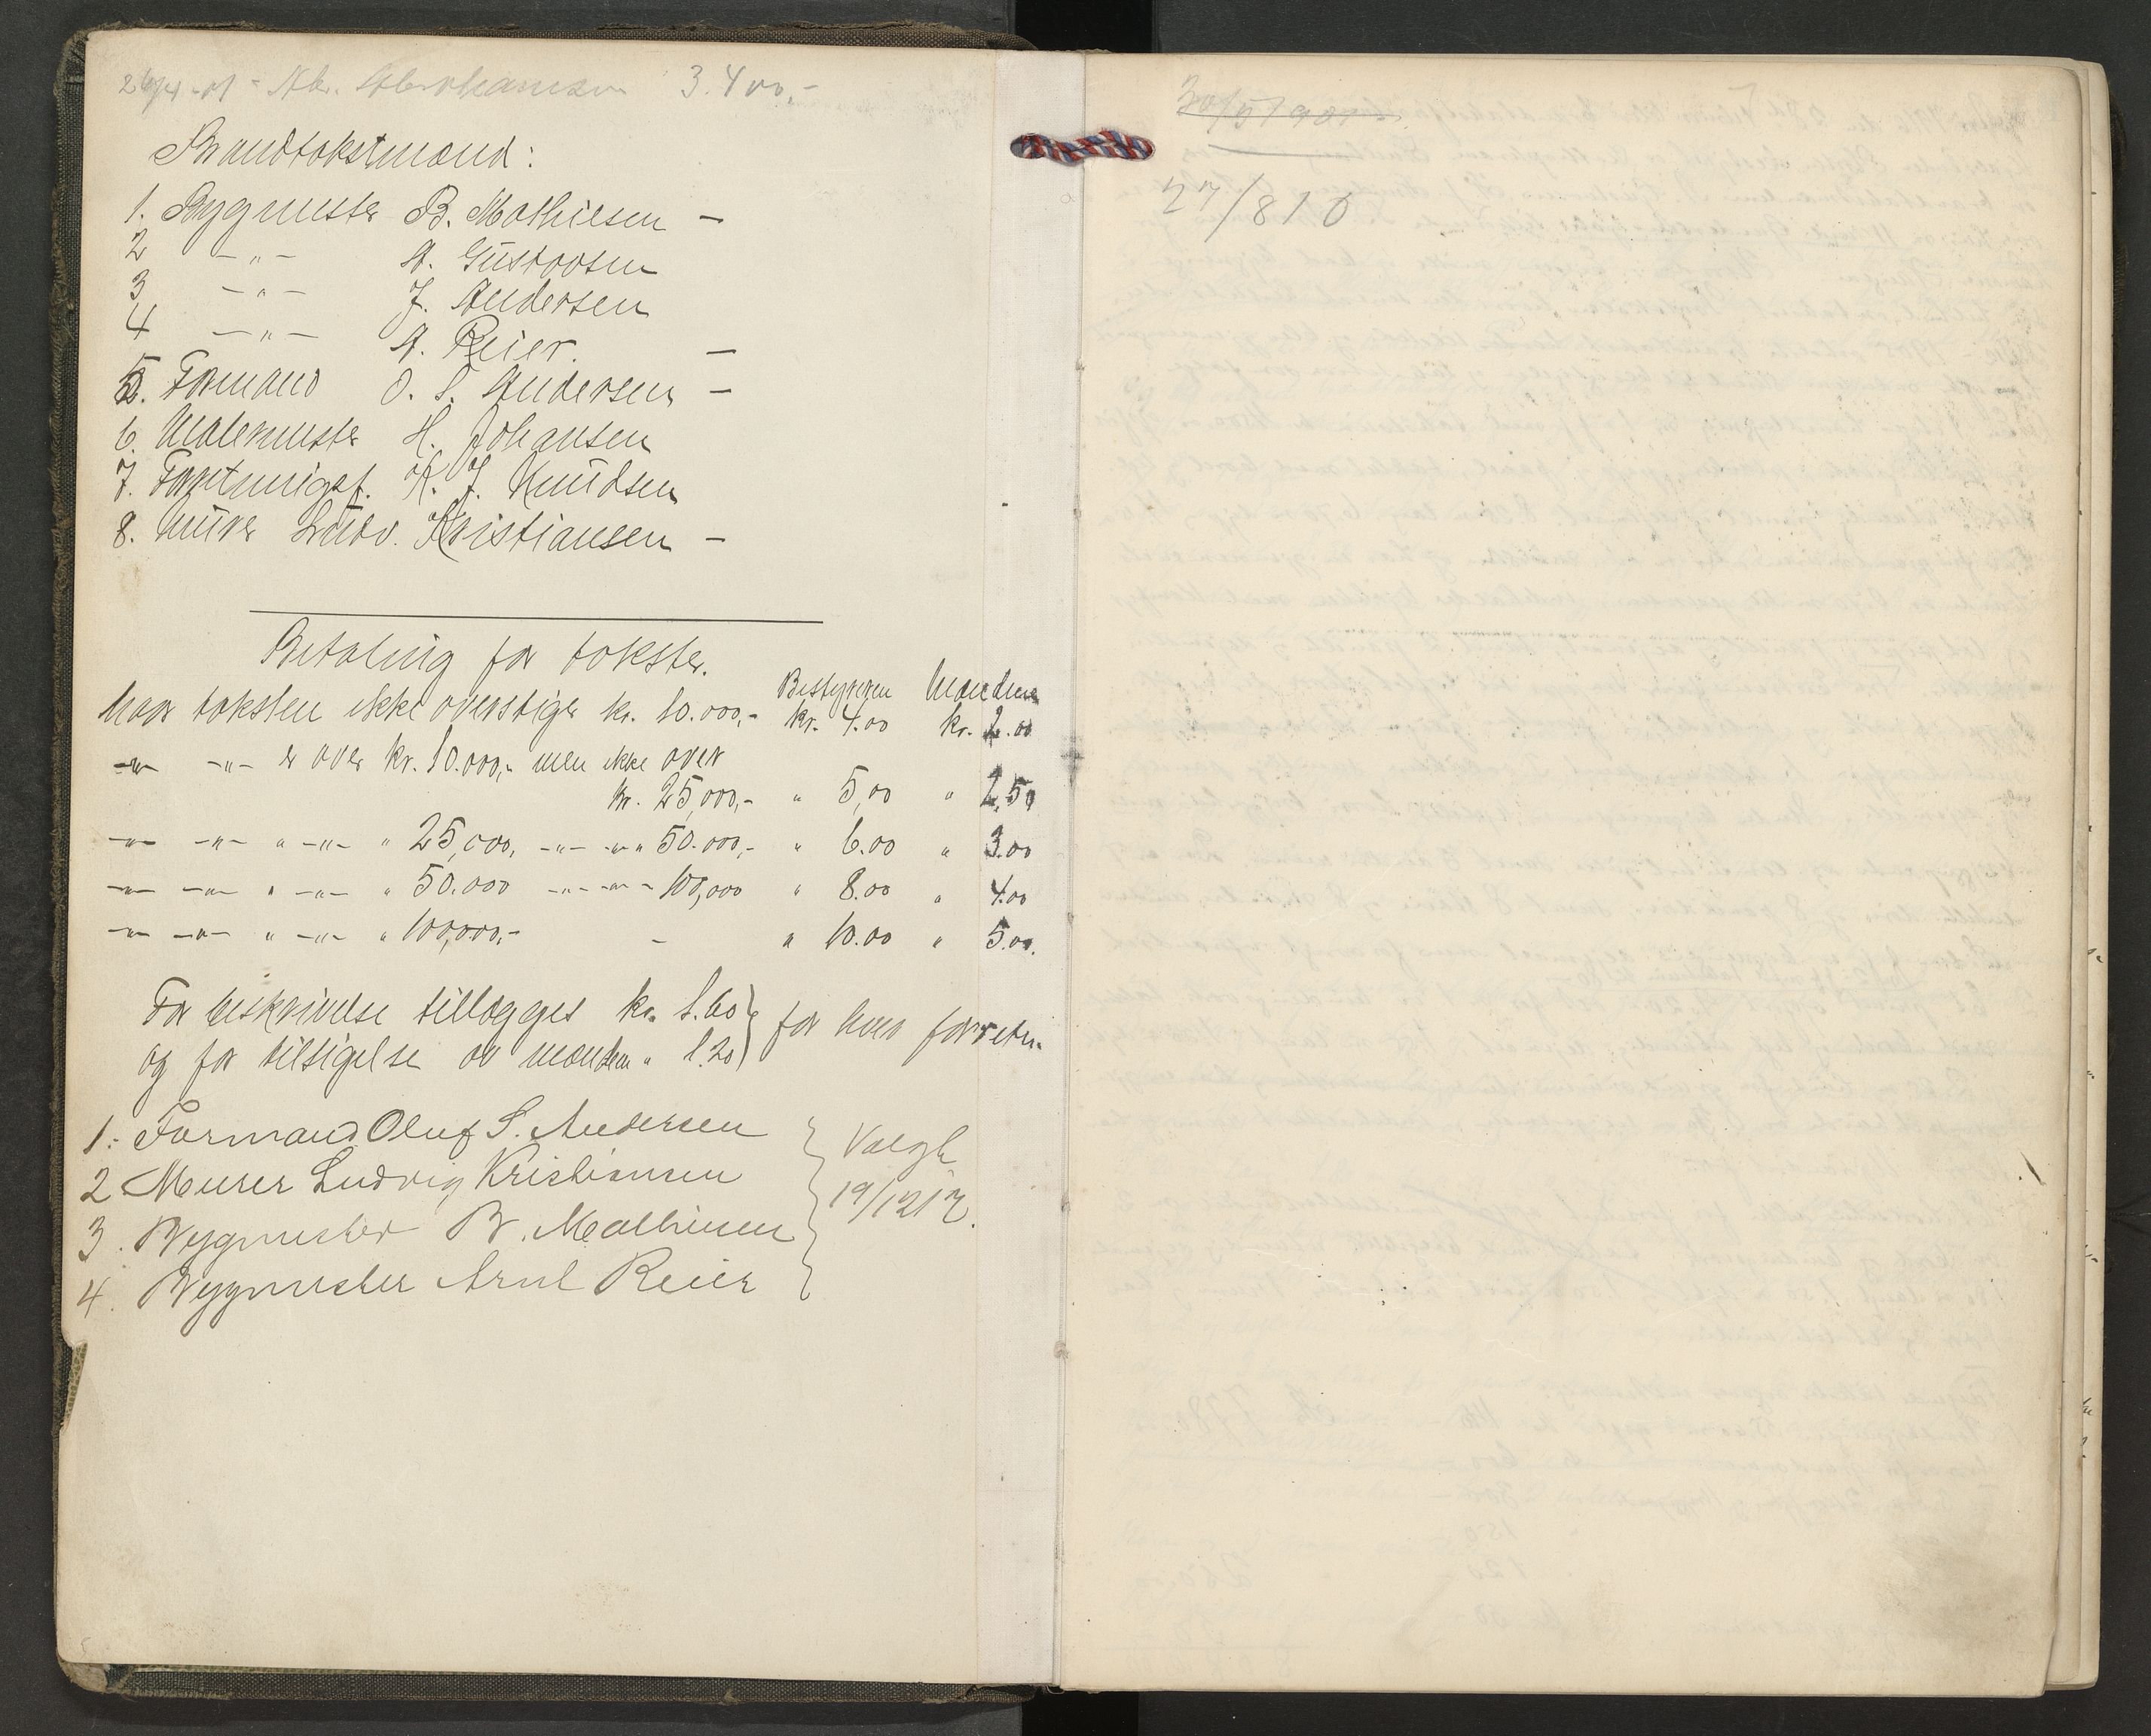 26/4-01 - Ab. Abrahamsen 3.400,-
Brandtakstmænd:
1. Bygmester B. Mathiesen -
2 -"- A. Gustavsen
3 -"- J. Andersen
4 -"- A. Reier. -
5. Formand O. S. Andersen -
6. Malermester H. Johansen
7. K. J. Knudsen
8. Murer Ludv. Kristiansen -
Betaling for takster.
Bestyreren Mændene
Naar taksten ikke overstiger kr. 10.000,- kr. 4.00 kr. 2.00
-"- -"- er over kr. 10.000,- men ikke over
kr. 25,000,- " 5,00 " 2,50
-"- -"- " -"- " 25,000, -"- -"- " 50.000,- " 6.00 " 3.00
-"- -"- " -"- " 50.000 -"- -"- - 100,000 " 8.00 " 4.00
-"- -"- " -"- " 100,000,- - " 10.00 " 5.00.
For beskrivelse tillægges kr. 1.60 } for hver forretn.
og for tilsigelse av mændene " 1.20
1. Formand Oluf S. Andersen } Valgt
2 Murer Ludvig Kristiansen
3. Bygmester B. Mathiesen 19/12 12.
4. Bygmester Arnt Reier
30/5 1901
27/8 10